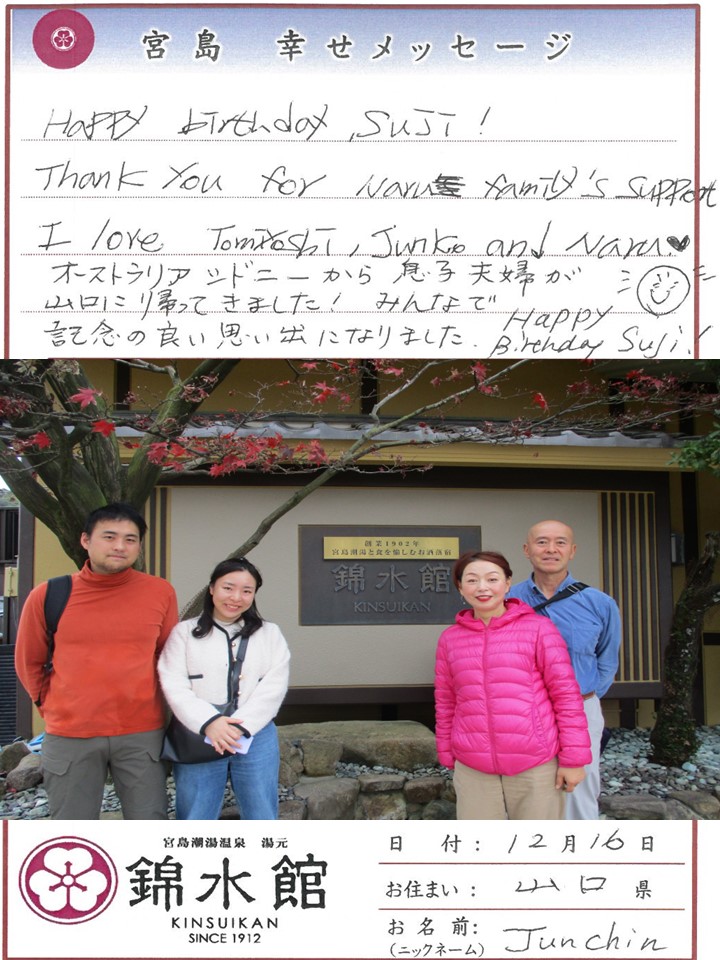 宮島 幸せメッセージ
Happy birthday, Suji!
Thank you for Naru family's support
I love Tomiyoshi, Junko and Naru.♥
オーストラリア シドニーから 息子夫婦が
山口に帰ってきました! みんなで
記念の良い思い出になりました.
Happy
Birthday Suji!
創業1902年
宮島潮湯と食を愉しむお酒落宿
錦水館
KINSUIKAN
宮島潮湯温泉 湯元
錦水館
KINSUIKAN
SINCE 1912
日付: 12月16日
お住まい: 山口県
お名前:
(ニックネーム) Junchin